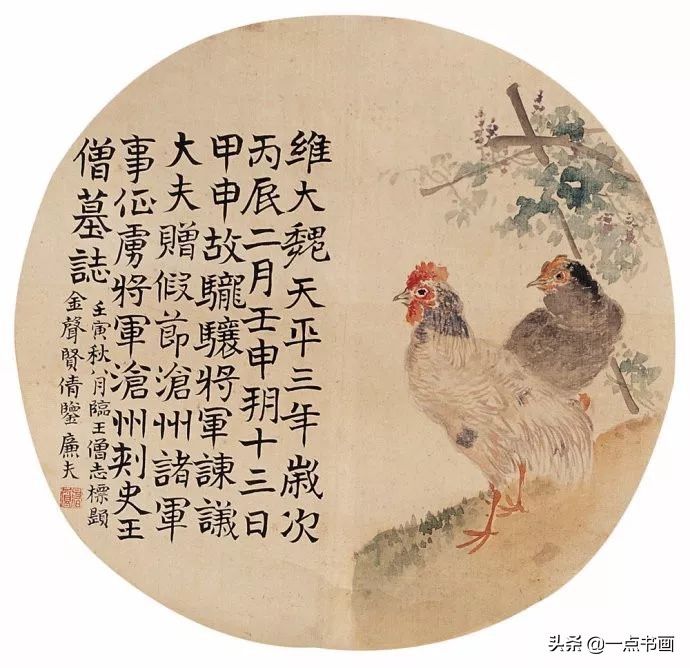 維大魏天平三年歲次
丙辰二月壬申朔十三日
甲申故䮾驤將軍諫議
大夫贈假節滄州諸軍
事征虜將軍滄州刺史王
僧墓誌
壬寅秋八月臨王僧志標題
金聲賢倩鑒 廉夫
头条 @一点书画